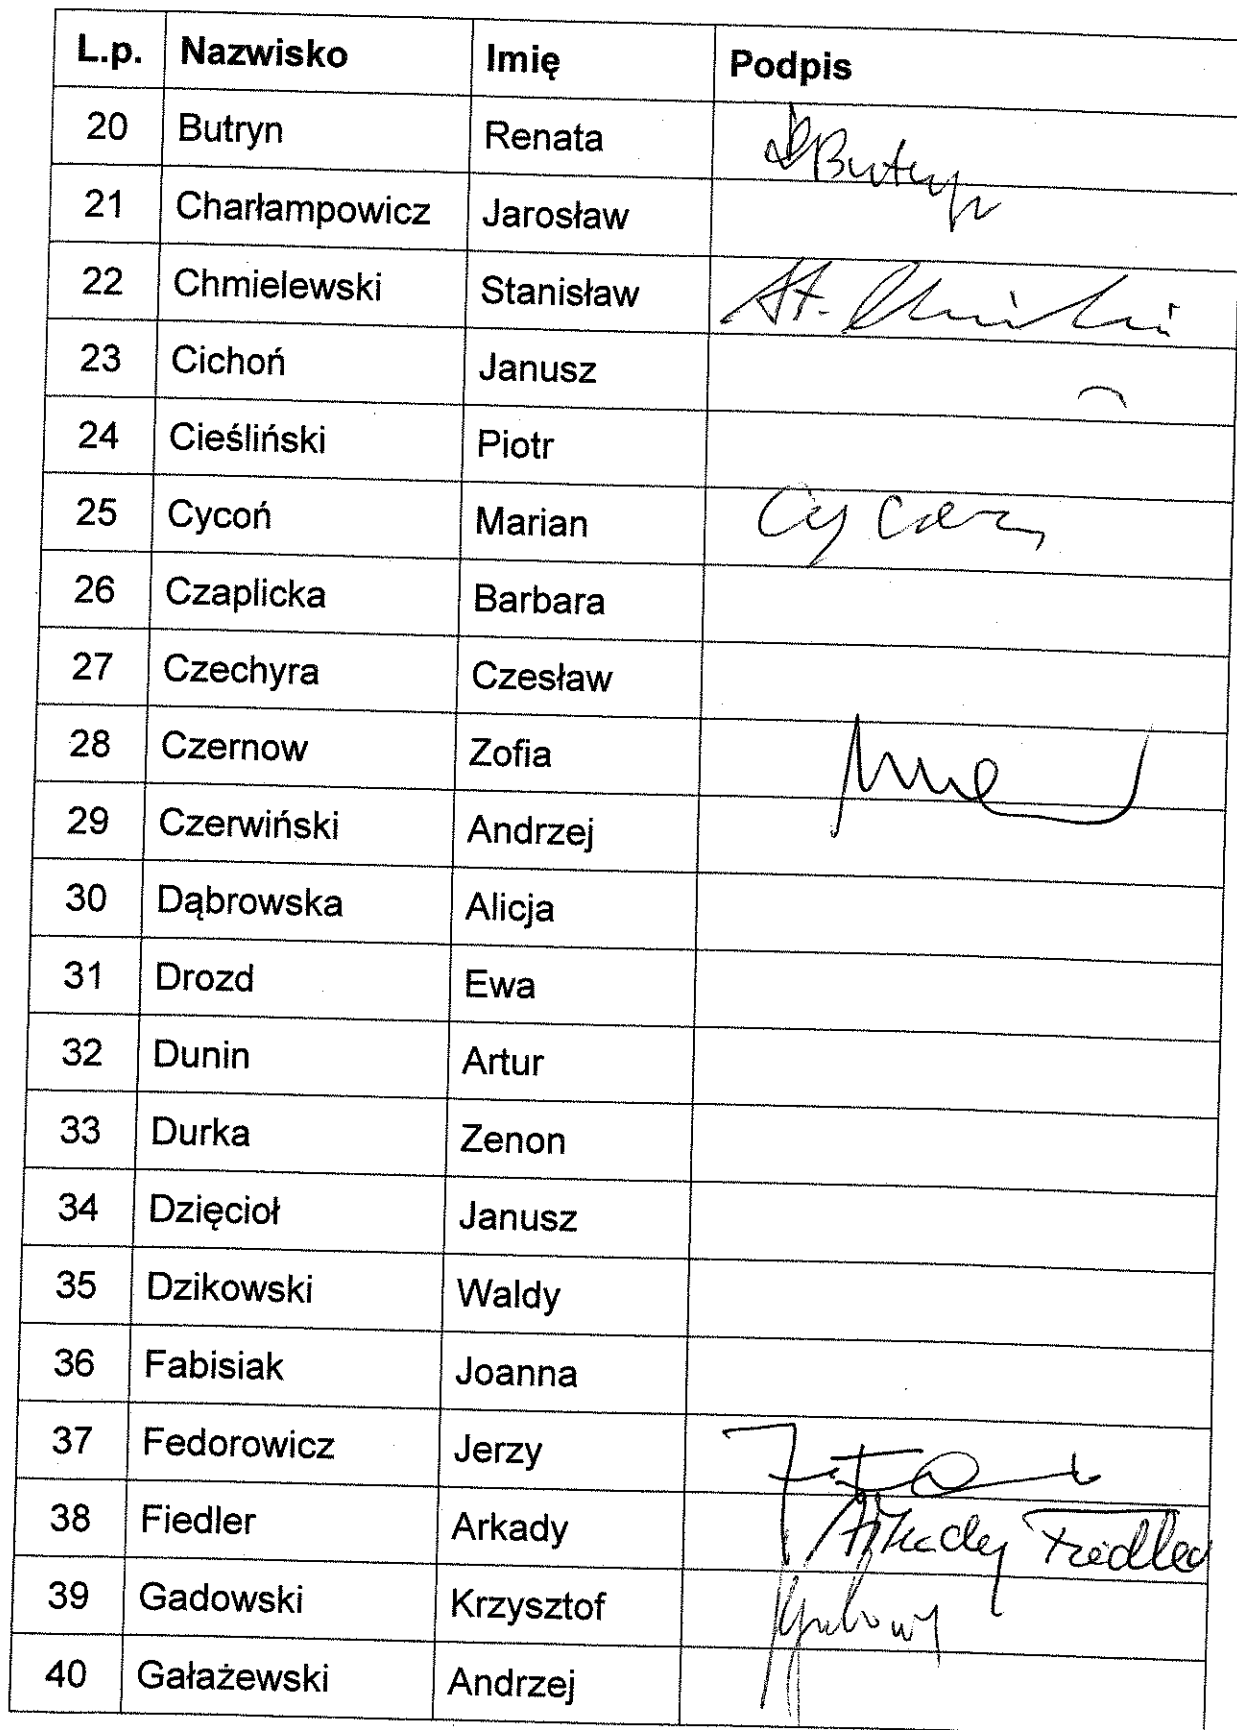 L.p. Nazwisko Imię Podpis
20 Butryn Renata Butryn
21 Charłampowicz Jarosław
22 Chmielewski Stanisław St.
23 Cichoń Janusz
24 Cieśliński Piotr
25 Cycoń Marian Cycoń
26 Czaplicka Barbara
27 Czechyra Czesław
28 Czernow Zofia
29 Czerwiński Andrzej
30 Dąbrowska Alicja
31 Drozd Ewa
32 Dunin Artur
33 Durka Zenon
34 Dzięcioł Janusz
35 Dzikowski Waldy
36 Fabisiak Joanna
37 Fedorowicz Jerzy
38 Fiedler Arkady Arkady Fiedler
39 Gadowski Krzysztof
40 Gałażewski Andrzej